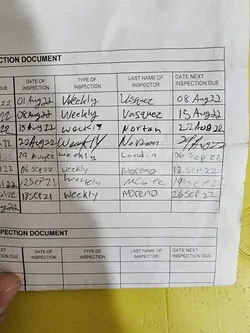 CTION DOCUMENT
DUE DATE OF INSPECTION TYPE OF INSPECTION LAST NAME OF INSPECTOR DATE NEXT INSPECTION DUE
22 01 Aug 22 Weekly Vasquez 08 Aug 22
22 08 Aug 22 Weekly Vasquez 15 Aug 22
22 15 Aug 22 Weekly Norton 22 Aug 22
22 22 Aug 22 Weekly Norton Aug 22
22 29 Aug 22 weekly Landin 06 Sep 22
22 06 Sep 22 weekly Moreno 12 Sep 22
22 12 Sep 21 Weekly 19 Sep 22
22 Sep 21 weekly Moreno 26 Sep 22
22
SPECTION DOCUMENT
DATE OF INSPECTION TYPE OF INSPECTION LAST NAME OF INSPECTOR DATE NEXT INSPECTION DUE